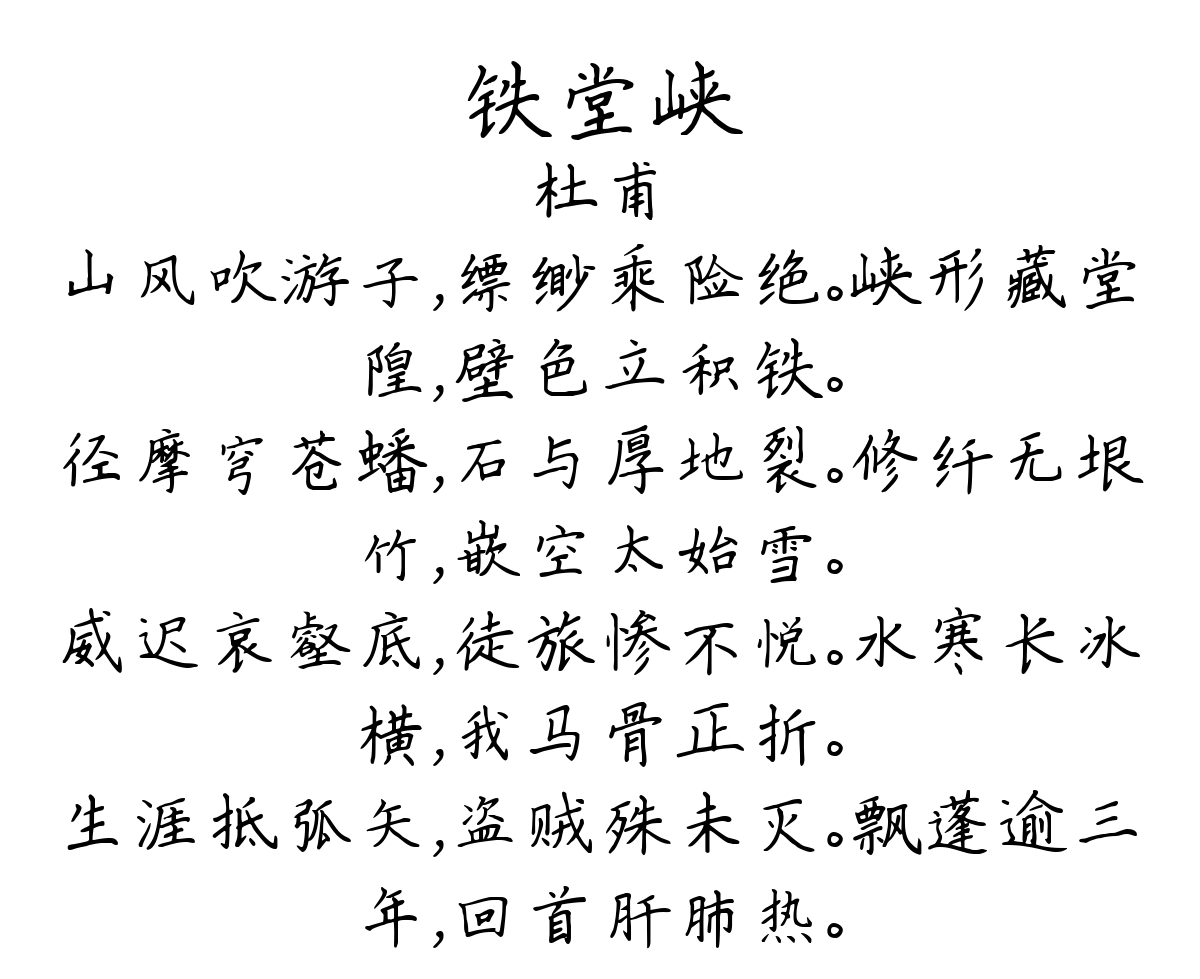 铁堂峡
杜甫
山风吹游子,缥缈乘险绝。峡形藏堂
隍,壁色立积铁。
径摩穹苍蟠,石与厚地裂。修纤无垠
竹,嵌空太始雪。
威迟哀壑底,徒旅惨不悦。水寒长冰
横,我马骨正折。
生涯抵弧矢,盗贼殊未灭。飘蓬逾三
年,回首肝肺热。